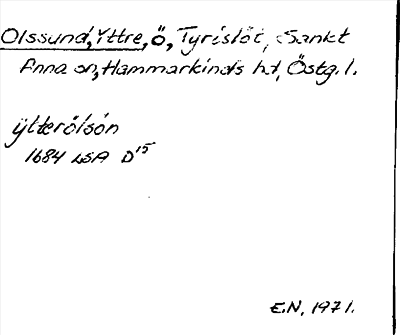 Olssund, Yttre, ö, Tyrislöt, Sankt
Anna sn, Hammarkinds hd, Östg. l.
ÿtterölsön
1684 LSA D15
E.N. 1971.